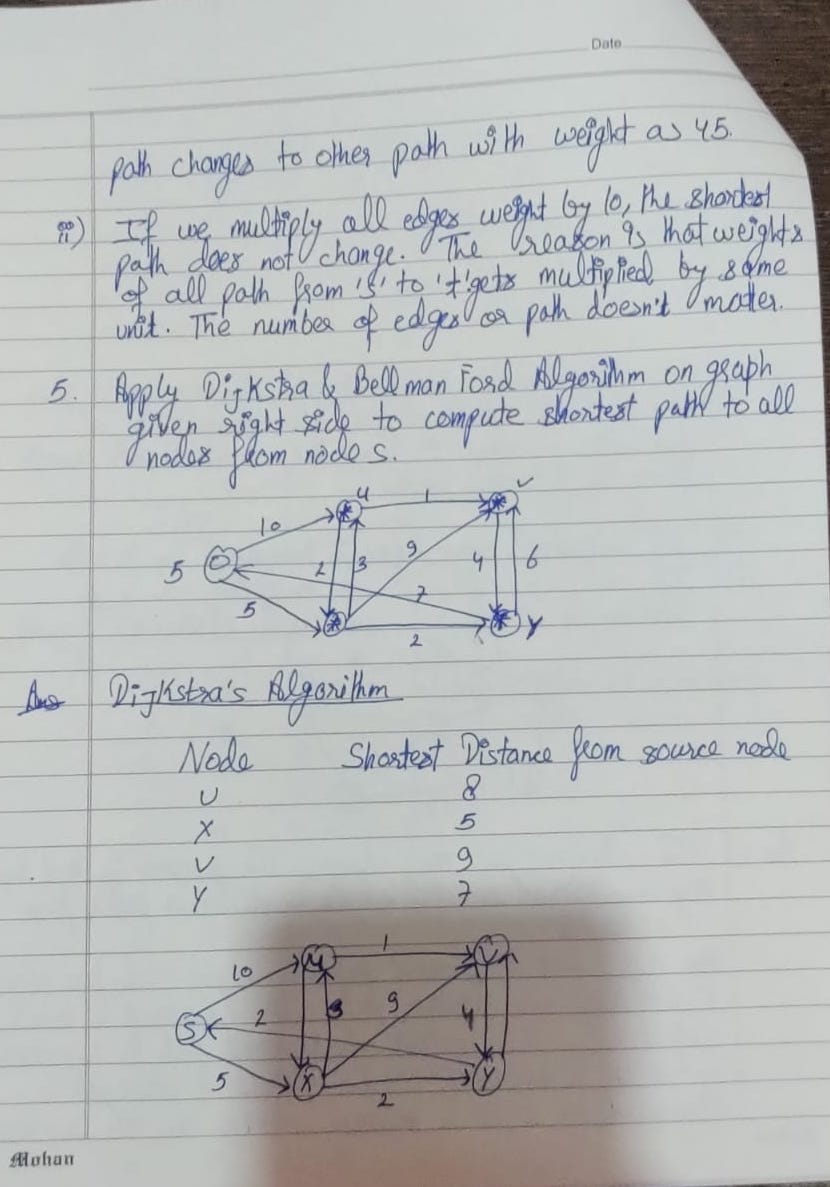 Date
path changes to other path with weight as 45.
ii) If we multiply all edges weight by 10, the shortest
path does not change. The reason is that weights
of all path from 's' to 't' gets multiplied by same
unit. The number of edges or path doesn't matter.
5. Apply Dijkstra & Bellman Ford Algorithm on graph
given right side to compute shortest path to all
nodes from node s.
U 1 V
10
5 2 3 9 4 6
7
5 2 Y
Ans Dijkstra's Algorithm
Node Shortest Distance from source node
U 8
X 5
V 9
Y 7
U 1 V
10
S 2 3 9 4
5 X 2 Y
Mohan